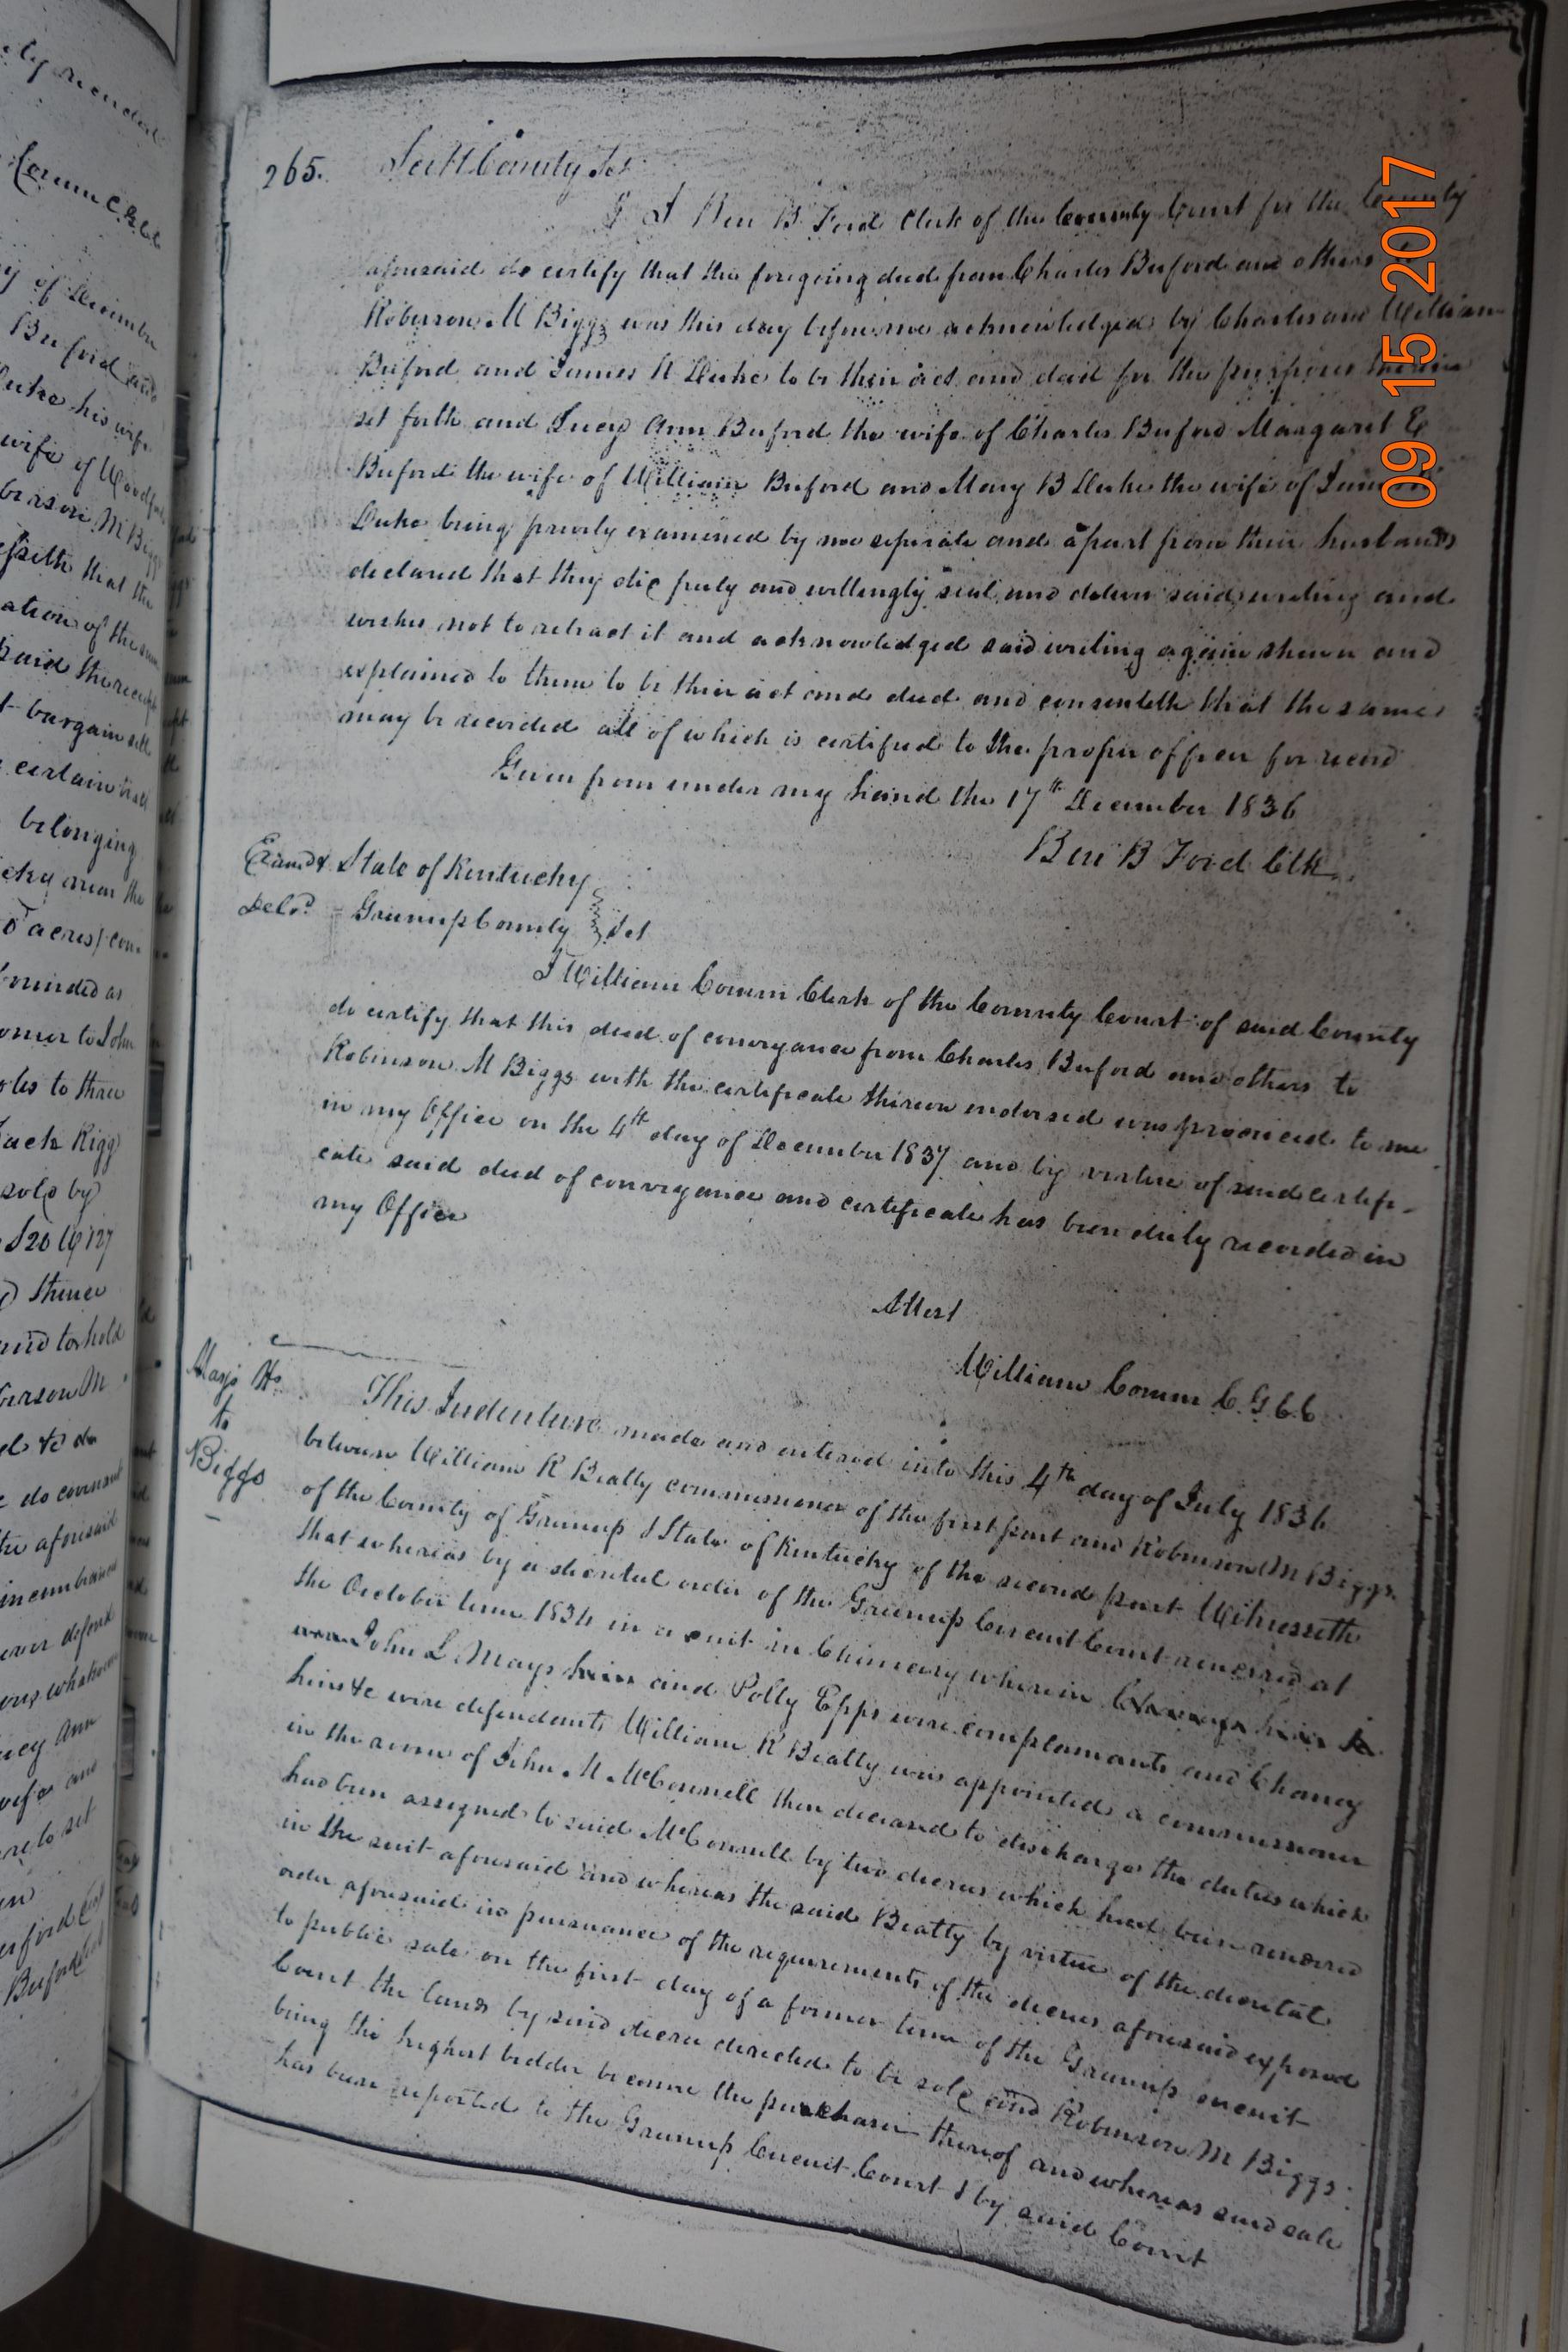 ly recorded
Corum C.G.C.C.
y of December
Buford and
Duke his wife
wife of Woodf
berson M Biggs
esseth that the
ation of the sum
paid the receipt
t bargain sell
certain tract
belonging
cky near the
acres/ con
bounded as
orner to John
oles to three
Zach Rigg
sold by
S 20 W 127
thence
and to hold
berson M
do covenant
the aforesaid
incumbrance
ever defend
ons whatsoever
ucy Ann
wife and
are to set
uford
Buford
265. Scott County Sct
I Ben B. Ford Clerk of the County Court for the County
aforesaid do certify that the foregoing deed from Charles Buford and others to
Roberson M Biggs was this day before me acknowledged by Charles and William
Buford and James K Duke to be their act and deed for the purposes therein
set forth and Lucy Ann Buford the wife of Charles Buford Margaret E
Buford the wife of William Buford and Mary B Duke the wife of James K
Duke being privily examined by me seperate and apart from their husbands
declared that they did freely and willingly seal and deliver said writing and
wishes not to retract it and acknowledged said writing again shewn and
explained to them to be their act and deed and consenteth that the same
may be recorded all of which is certified to the proper officer for record
Given from under my hand the 17th December 1836
Ben B Ford Clk
Examd & State of Kentucky
Deld. Greenup County Sct
I William Corum Clerk of the County Court of said County
do certify that this deed of conveyance from Charles Buford and others to
Robinson M Biggs with the certificate thereon endorsed was produced to me
in my Office on the 4th day of December 1837 and by virtue of said certifi-
cate said deed of conveyance and certificate has been duly recorded in
my Office
Attest
William Corum C.G.C.C.
Mays Hs
to
Biggs
This Indenture made and entered into this 4th day of July 1836
between William R Beatty commissioner of the first part and Robinson M Biggs
of the County of Greenup & State of Kentucky of the second part Witnesseth
that whereas by a decretal order of the Greenup Circuit Court rendered at
the October term 1834 in a suit in Chancery wherein
John L. Mays heirs and Polly Epps were complainants and Chaney
heirs &c were defendants William R Beatty was appointed a commissioner
in the room of John M. McConnell then deceased to discharge the duties which
had been assigned to said McConnell by two decrees which had been rendered
in the suit aforesaid and whereas the said Beatty by virtue of the decretal
order aforesaid in pursuance of the requirements of the decrees aforesaid exposed
to public sale on the first day of a former term of the Greenup circuit
Court the lands by said decree directed to be sold and Robinson M Biggs
being the highest bidder became the purchaser thereof and whereas said sale
has been reported to the Greenup Circuit Court & by said Court
09 15 2017